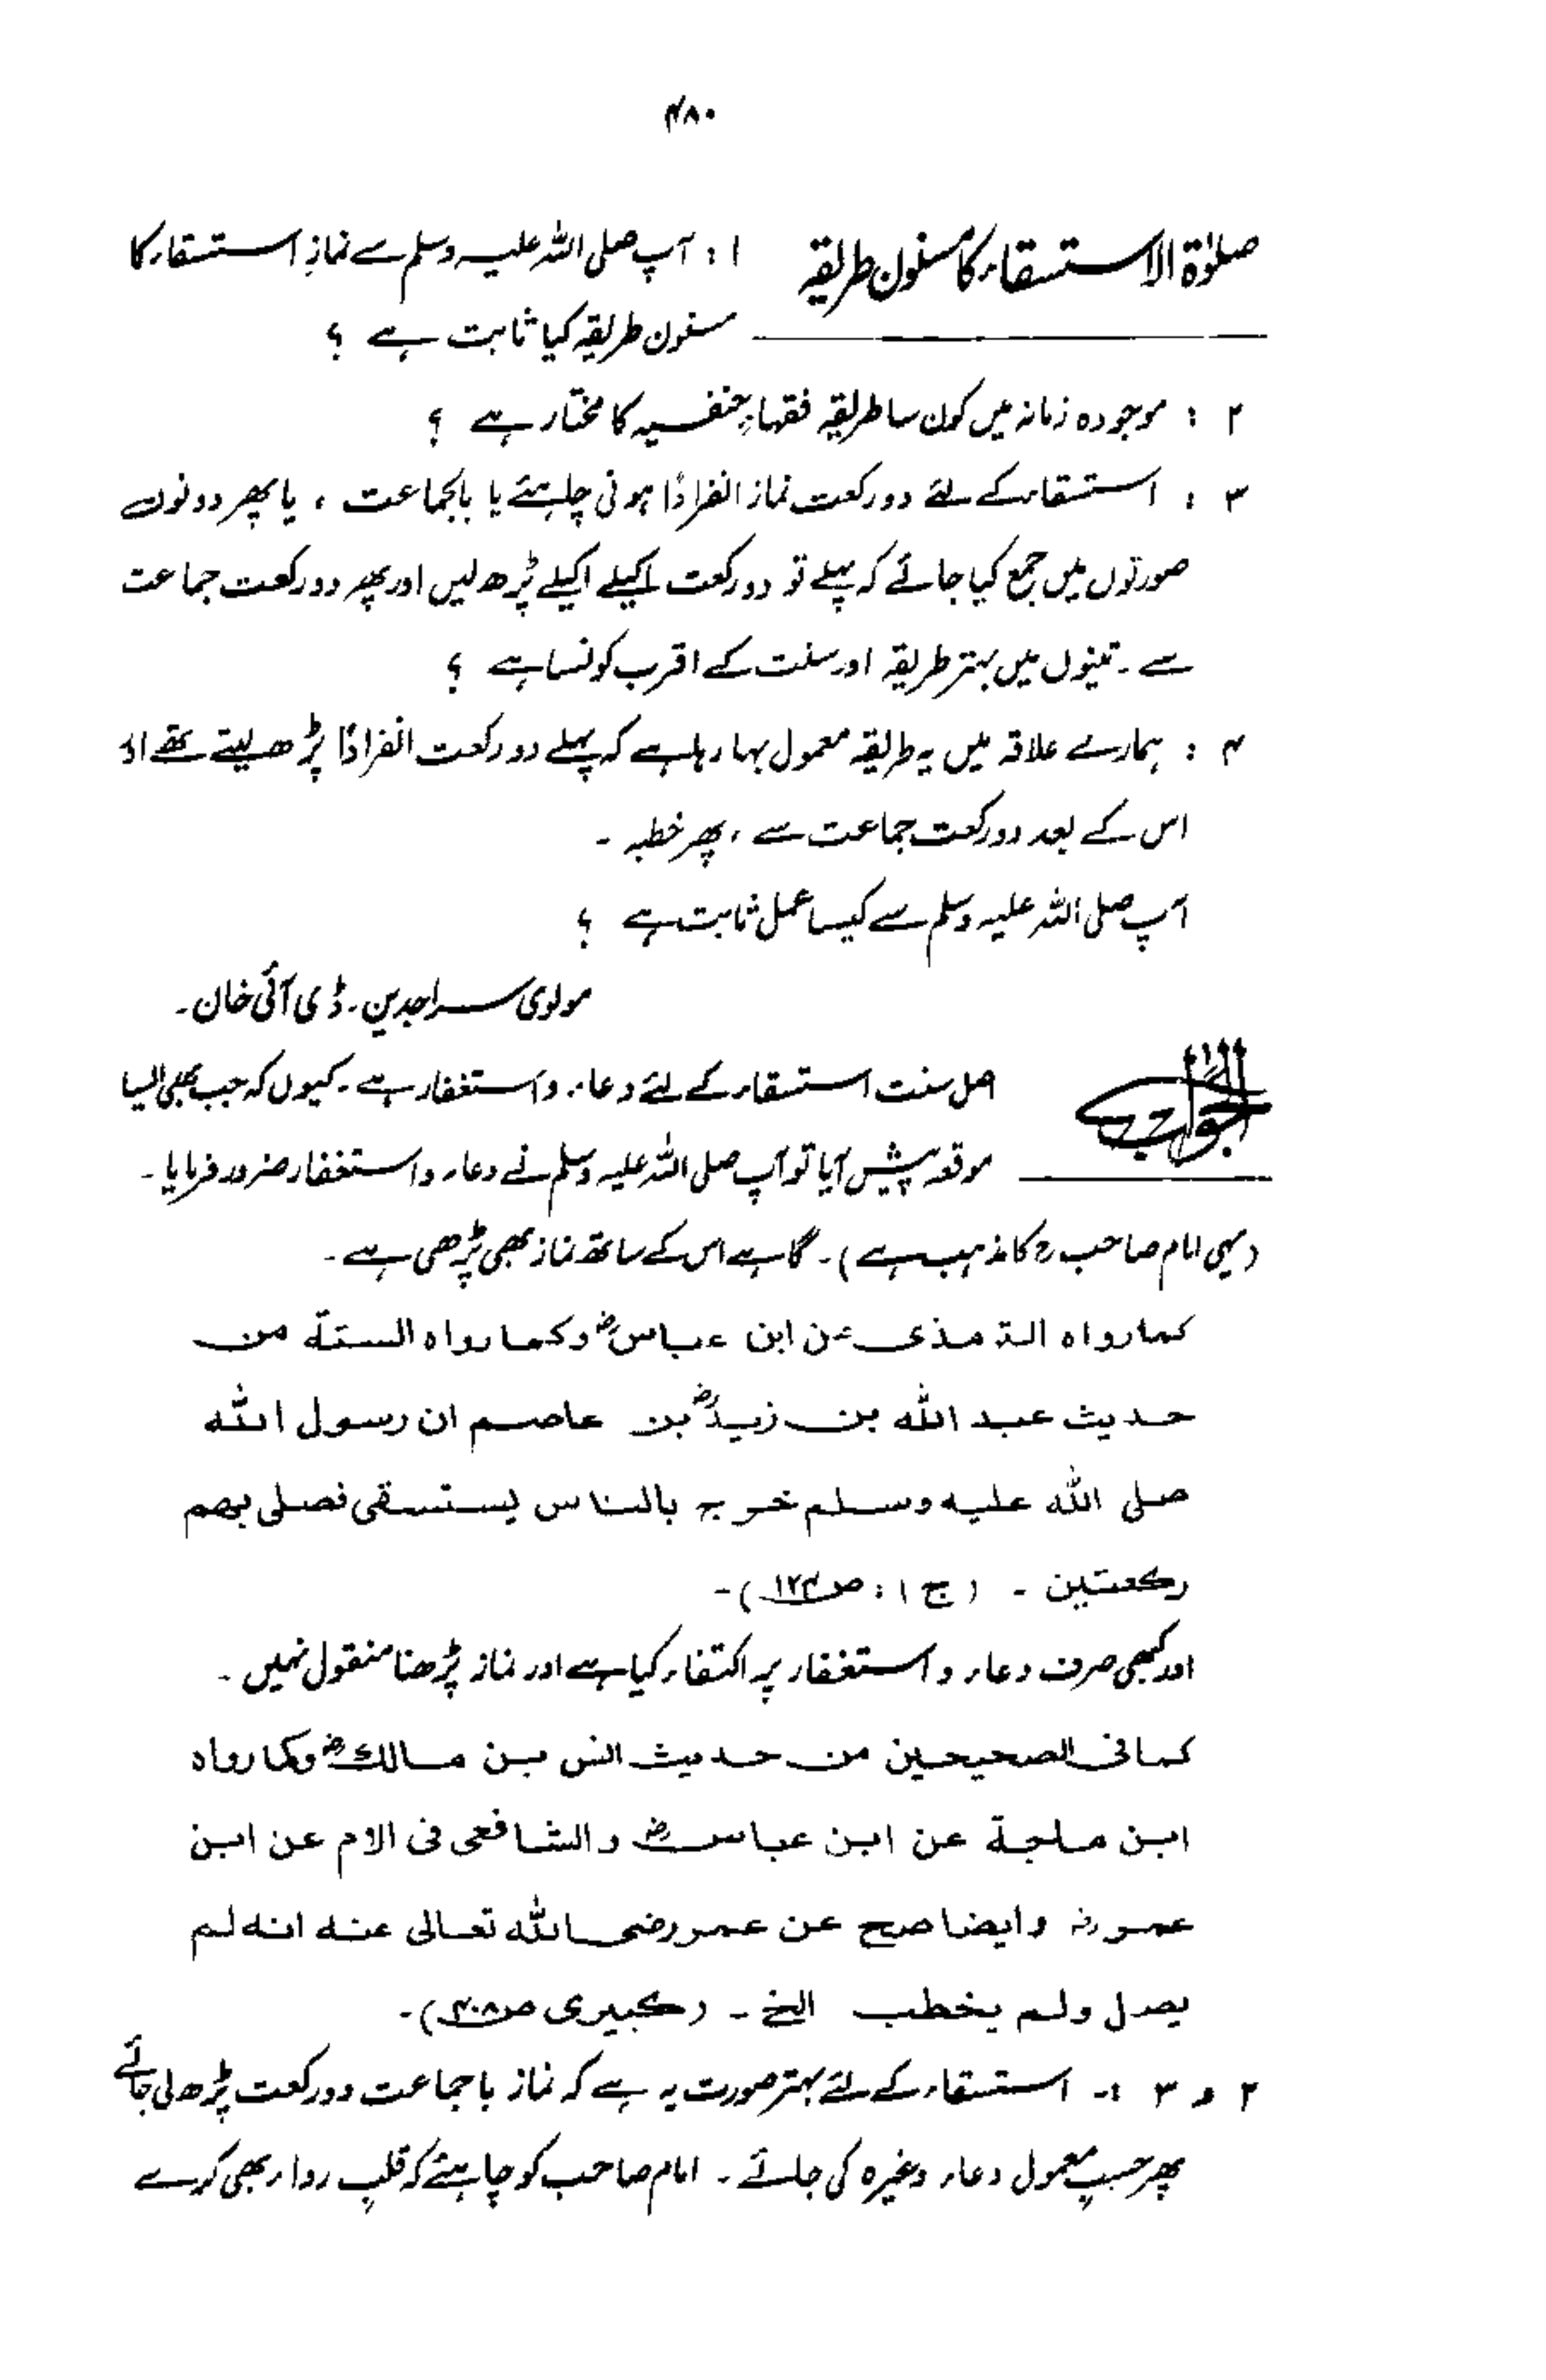 ۴۸۰
صلوٰۃ الاستسقاء کا مسنون طریقہ
۱ : آپ صلی اللہ علیہ وسلم سے نمازِ استسقاء کا
مسنون طریقہ کیا ثابت ہے ؟
۲ : موجودہ زمانہ میں کون سا طریقہ فقہاءِ حنفیہ کا مختار ہے ؟
۳ : استسقاء کے لئے دو رکعت نماز انفرادًا ہونی چاہئے یا بالجماعت ، یا پھر دونوں
صورتوں میں جمع کیا جائے کہ پہلے تو دو رکعت اکیلے اکیلے پڑھ لیں اور پھر دو رکعت جماعت
سے ۔ تینوں میں بہتر طریقہ اور سنت کے اقرب کونسا ہے ؟
۴ : ہمارے علاقہ میں یہ طریقہ معمول بہا رہا ہے کہ پہلے دو رکعت انفرادًا پڑھ لیتے تھے اور
اس کے بعد دو رکعت جماعت سے ، پھر خطبہ ۔
آپ صلی اللہ علیہ وسلم سے کیسا عمل ثابت ہے ؟
مولوی سراجدین ۔ ڈی آئی خان ۔
الجواب
اصل سنت استسقاء کے لئے دعاء و استغفار ہے ۔ کیوں کہ جب بھی ایسا
موقعہ پیش آیا تو آپ صلی اللہ علیہ وسلم نے دعاء و استغفار ضرور فرمایا ۔
(یہی امام صاحب رح کا مذہب ہے) ۔ گاہے اس کے ساتھ نماز بھی پڑھی ہے ۔
كما رواه الترمذى عن ابن عباسؓ وكما رواه الستة من
حديث عبد الله بن زيدؓ بن عاصم ان رسول الله
صلى الله عليه وسلم خرج بالناس يستسقى فصلى بهم
ركعتين ۔ (ج ۱ : ص ۱۲۴) ۔
اور کبھی صرف دعاء و استغفار پر اکتفاء کیا ہے اور نماز پڑھنا منقول نہیں ۔
كما فى الصحيحين من حديث انس بن مالكؓ وكما رواه
ابن ماجة عن ابن عباسؓ والشافعى فى الام عن ابن
عمرؓ وايضا صح عن عمر رضى الله تعالى عنه انه لم
يصل ولم يخطب الخ ۔ (کبیری ص۴۰۸) ۔
۲ و ۳ :۔ استسقاء کے لئے بہتر صورت یہ ہے کہ نماز باجماعت دو رکعت پڑھ لی جائے
پھر حسبِ معمول دعاء وغیرہ کی جائے ۔ امام صاحب کو چاہیئے کہ قلبِ رداء بھی کرے